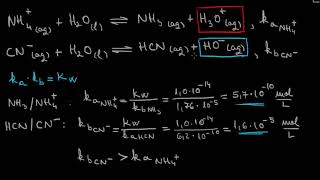 NH₄⁺(aq) + H₂O(l) ⇌ NH₃(aq) + H₃O⁺(aq) , kₐ NH₄⁺
CN⁻(aq) + H₂O(l) ⇌ HCN(aq) + HO⁻(aq) , k_b CN⁻
kₐ · k_b = Kw
NH₃/NH₄⁺ : kₐ NH₄⁺ = Kw / k_b NH₃ = 1,0·10⁻¹⁴ / 1,76·10⁻⁵ = 5,7·10⁻¹⁰ mol/L
HCN/CN⁻ : k_b CN⁻ = Kw / kₐ HCN = 1,0·10⁻¹⁴ / 6,2·10⁻¹⁰ = 1,6·10⁻⁵ mol/L
k_b CN⁻ > kₐ NH₄⁺